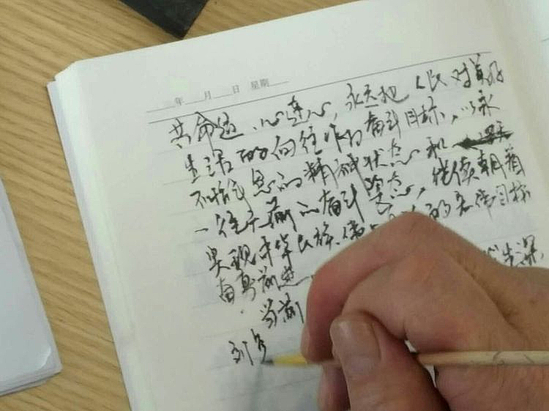 年 月 日 星期
共命运、心连心,永远把人民对美好
生活的向往作为奋斗目标,以永
不懈怠的精神状态和
一往无前的奋斗姿态,继续朝着
实现中华民族伟大复兴的宏伟目标
奋勇前进
当前
刘